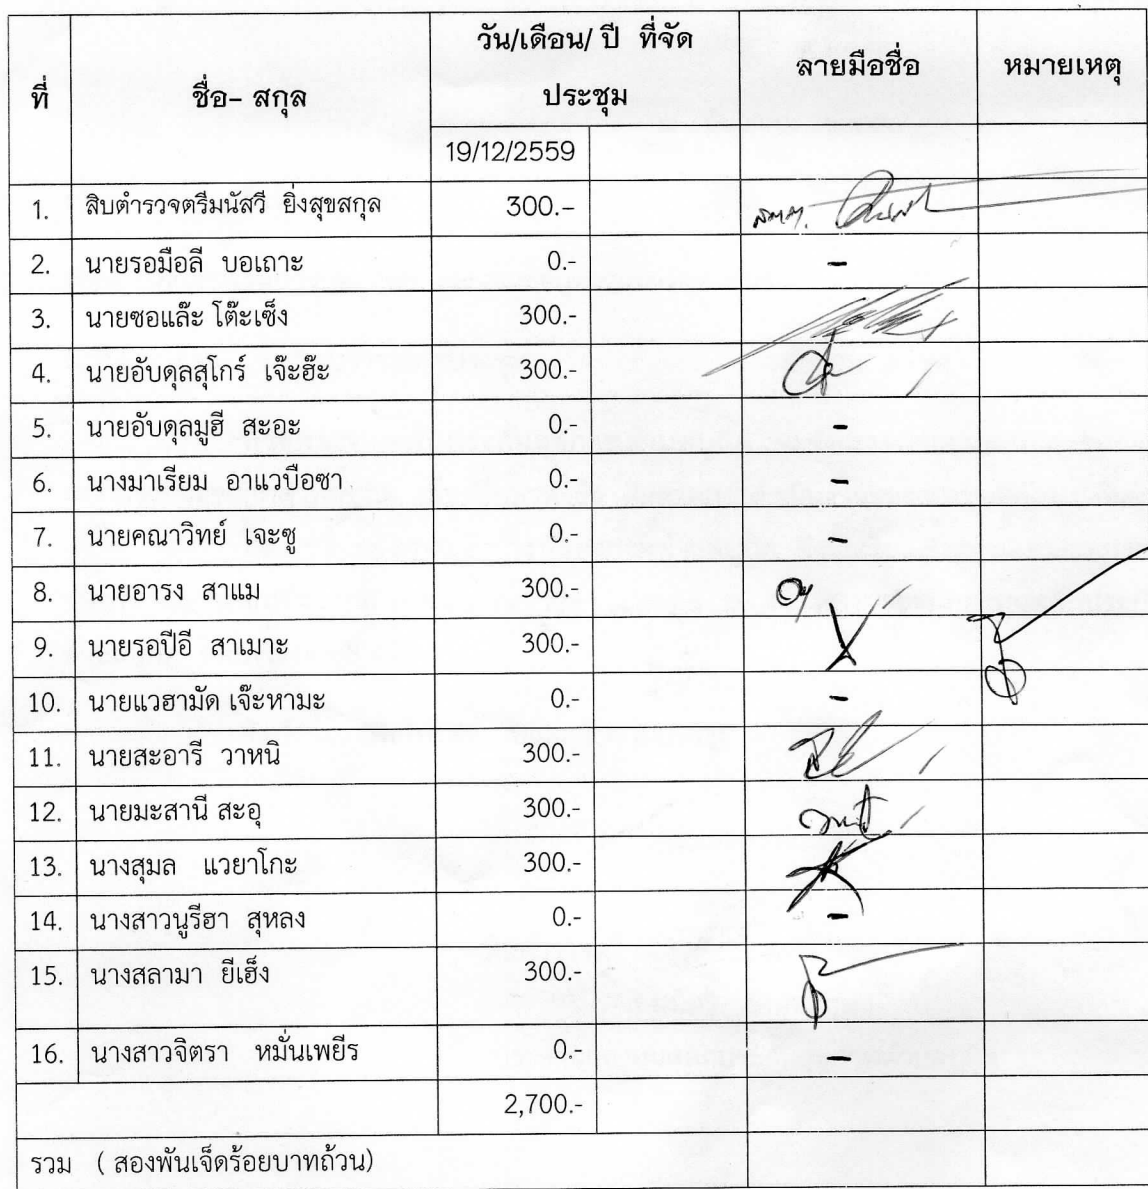 ที่ ชื่อ- สกุล วัน/เดือน/ ปี ที่จัด ลายมือชื่อ หมายเหตุ
ประชุม
19/12/2559
1. สิบตำรวจตรีมนัสวี ยิ่งสุขสกุล 300.-
2. นายรอมือลี บอเถาะ 0.- -
3. นายซอและ๊ โต๊ะเซ็ง 300.-
4. นายอับดุลสุโกร์ เจ๊ะฮ๊ะ 300.-
5. นายอับดุลมูฮี สะอะ 0.- -
6. นางมาเรียม อาแวบือซา 0.- -
7. นายคณาวิทย์ เจะซู 0.- -
8. นายอารง สาแม 300.-
9. นายรอปีอี สาเมาะ 300.-
10. นายแวฮามัด เจ๊ะหามะ 0.- -
11. นายสะอารี วาหนิ 300.-
12. นายมะสานี สะอุ 300.-
13. นางสุมล แวยาโกะ 300.-
14. นางสาวนูรีฮา สุหลง 0.- -
15. นางสลามา ยีเฮ็ง 300.-
16. นางสาวจิตรา หมั่นเพยีร 0.- -
2,700.-
รวม ( สองพันเจ็ดร้อยบาทถ้วน)